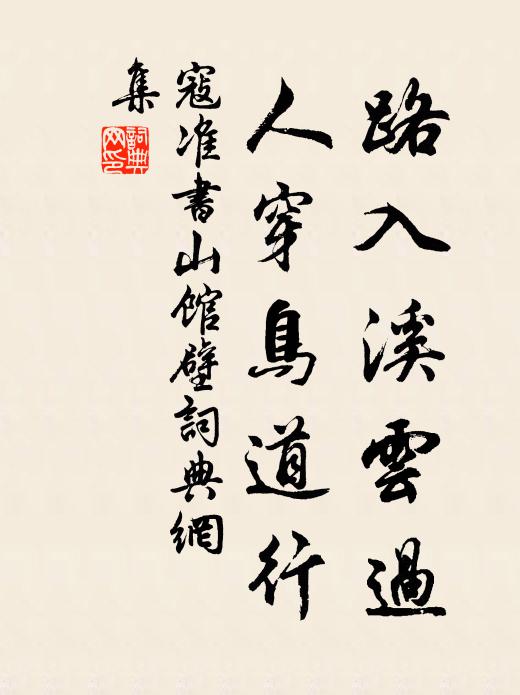 路入溪雲過
人穿鳥道行
寇准書山館壁詞典網
集
詞典
网印